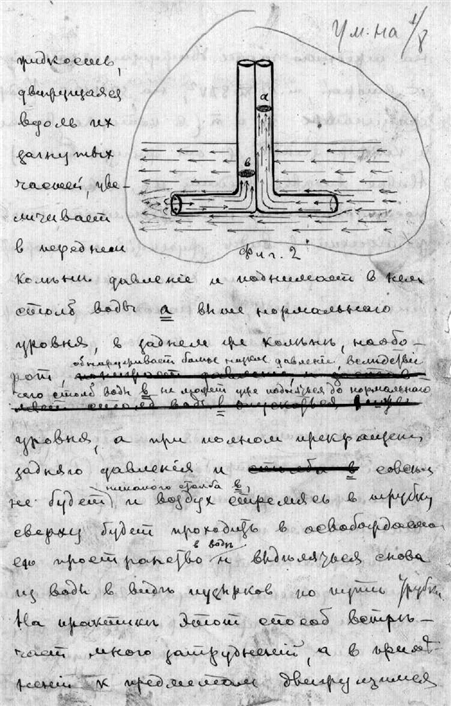 Ум. на 1/8
а
в
Фиг. 2
жидкость,
движущаяся
вдоль их
загнутых
частей, уве-
личивает
в переднем
колѣнѣ давленіе и поднимает в нем
столб воды а выше нормальнаго
уровня, в заднем же колѣнѣ, наобо-
рот, обнаруживает более низкое давленіе вследствіе
чего столб воды в не может уже подняться до нормальнаго
уровня, а при полном прекращеніи
задняго давленія и столба в совсѣм
не будет никакого столба в, и воздух стремясь в трубку
сверху будет проходить в освобожденное
ею пространство и выделяться в водѣ снова
из воды в видѣ пузырьков по пути трубки
На практикѣ этот способ встрѣ-
чает много затрудненій, а в примѣ-
неніи к предметам движущимся